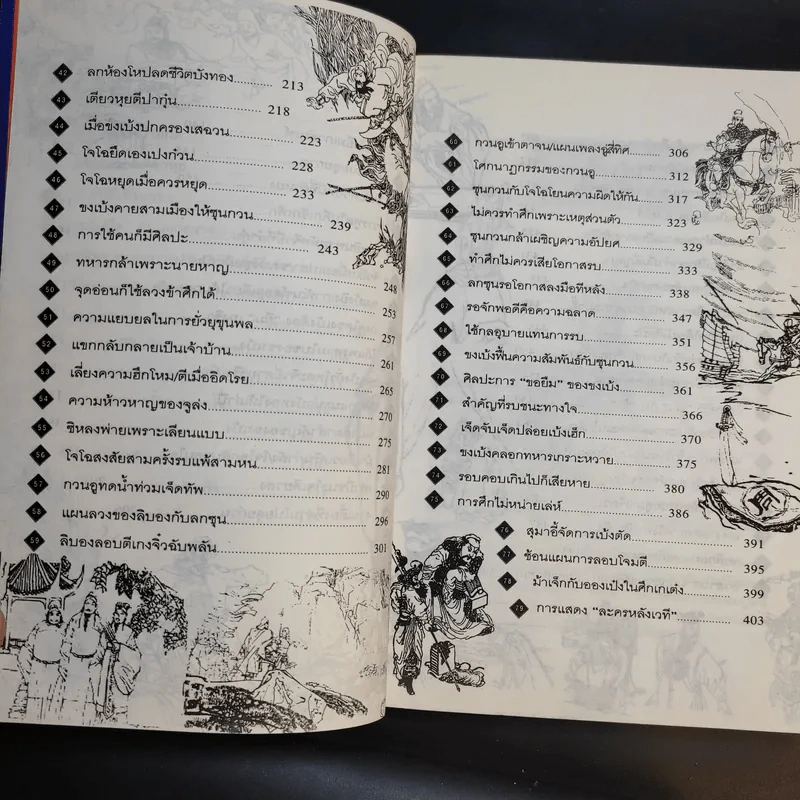 42 ลกห้องโหปลดชีวิตบังทอง.......... 213
43 เตียวหุยตีปากุ๋น.................... 218
44 เมื่อขงเบ้งปกครองเสฉวน.............. 223
45 โจโฉยึดเองเปงก๋วน.................... 228
46 โจโฉหยุดเมื่อควรหยุด................. 233
47 ขงเบ้งคายสามเมืองให้ซุนกวน............ 239
48 การใช้คนก็มีศิลปะ.................. 243
49 ทหารกล้าเพราะนายหาญ.................... 248
50 จุดอ่อนก็ใช้ลวงข้าศึกได้.................... 253
51 ความแยบยลในการยั่วยุขุนพล................. 257
52 แขกกลับกลายเป็นเจ้าบ้าน.................... 261
53 เลี่ยงความฮึกโหม/ตีเมื่ออิดโรย................. 265
54 ความห้าวหาญของจูล่ง........................ 270
55 ซิหลงพ่ายเพราะเลียนแบบ..................... 275
56 โจโฉสงสัยสามครั้งรบแพ้สามหน................. 281
57 กวนอูทดน้ำท่วมเจ็ดทัพ...................... 290
58 แผนลวงของลิบองกับลกซุน..................... 296
59 ลิบองลอบตีเกงจิ๋วฉับพลัน...................... 301
60 กวนอูเข้าตาจน/แผนเพลงฉู่สี่ทิศ......... 306
61 โศกนาฏกรรมของกวนอู.................. 312
62 ซุนกวนกับโจโฉโยนความผิดให้กัน....... 317
63 ไม่ควรทำศึกเพราะเหตุส่วนตัว........... 323
64 ซุนกวนกล้าเผชิญความอัปยศ............. 329
65 ทำศึกไม่ควรเสียโอกาสรบ................. 333
66 ลกซุนรอโอกาสลงมือทีหลัง............... 338
67 รอจักพอดีคือความฉลาด.................. 347
68 ใช้กลอุบายแทนการรบ.................... 351
69 ขงเบ้งฟื้นความสัมพันธ์กับซุนกวน.......... 356
70 ศิลปะการ "ขอยืม" ของขงเบ้ง............. 361
71 สำคัญที่รบชนะทางใจ..................... 366
72 เจ็ดจับเจ็ดปล่อยเบ้งเฮ็ก................. 370
73 ขงเบ้งคลอกทหารเกราะหวาย.............. 375
74 รอบคอบเกินไปก็เสียหาย................ 380
75 การศึกไม่หน่ายเล่ห์..................... 386
76 สุมาอี้จัดการเบ้งตัด.................... 391
77 ซ้อนแผนการลอบโจมตี................. 395
78 ม้าเจ็กกับอองเป๋งในศึกเกเต๋ง.......... 399
79 การแสดง "ละครหลังเวที"............. 403
周